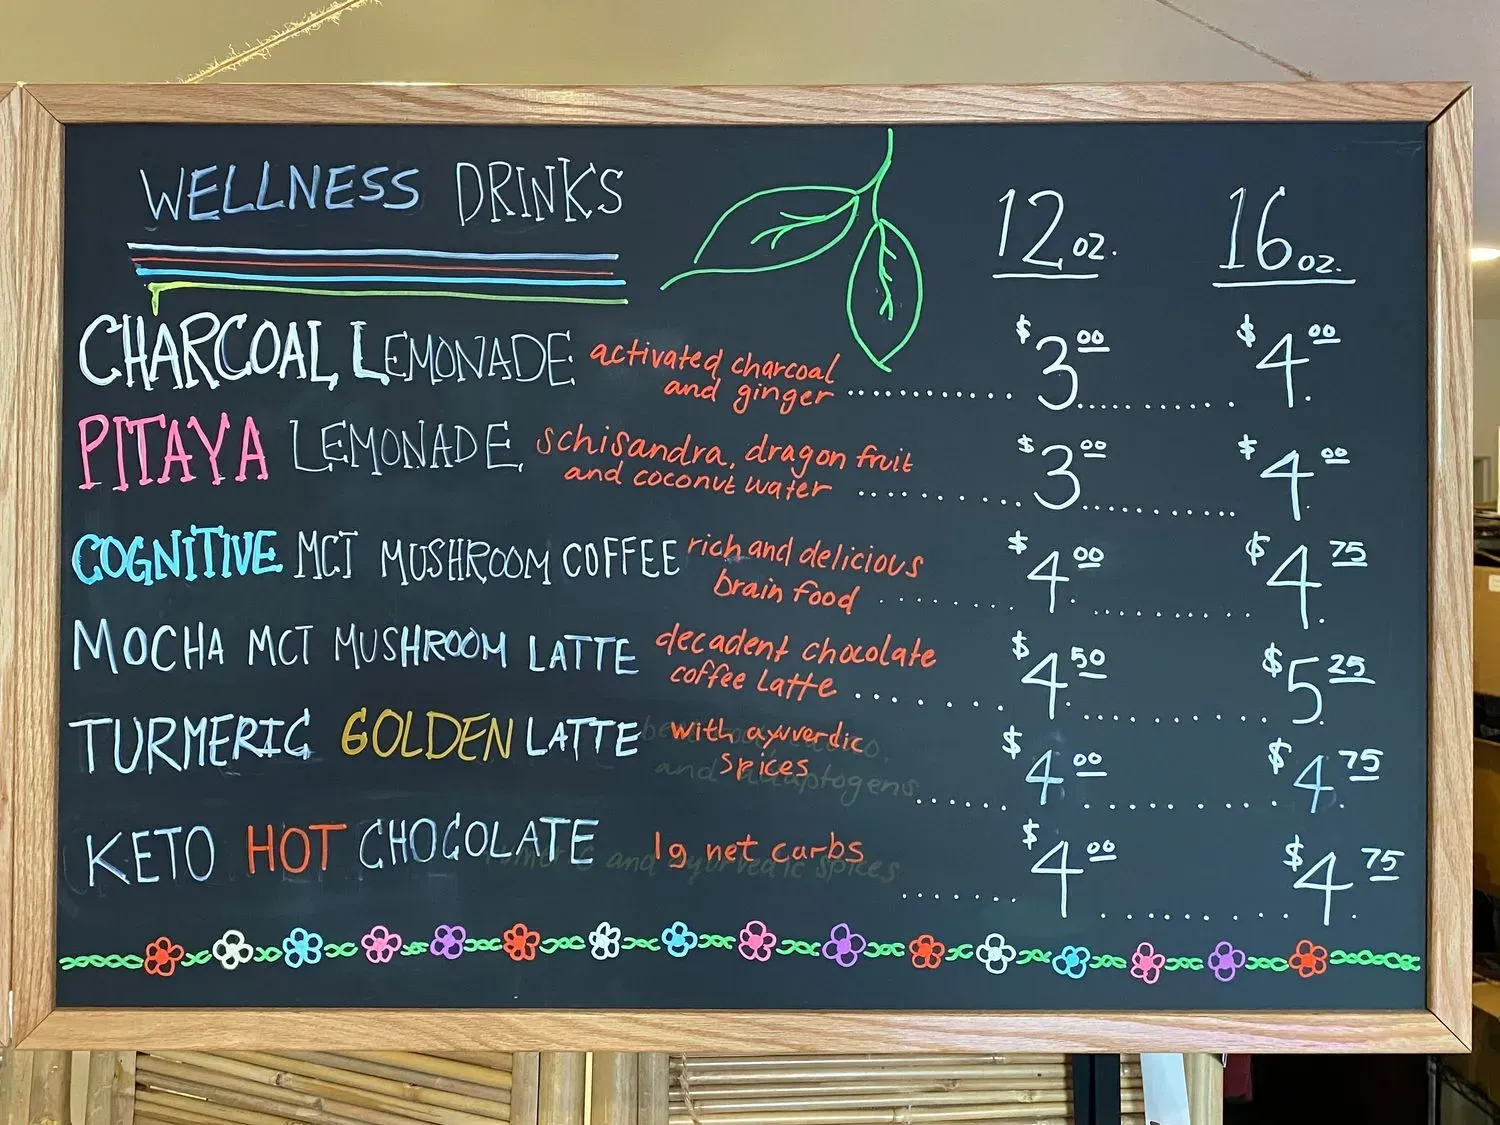 WELLNESS DRINKS 12 oz. 16 oz.
CHARCOAL LEMONADE activated charcoal $3 00 $4 00
and ginger
PITAYA LEMONADE schisandra, dragon fruit $3 00 $4 00
and coconut water
COGNITIVE MCT MUSHROOM COFFEE rich and delicious $4 00 $4 75
brain food
MOCHA MCT MUSHROOM LATTE decadent chocolate $4 50 $5 25
coffee latte
TURMERIC GOLDEN LATTE with ayuverdic $4 00 $4 75
spices
and adaptogens
KETO HOT CHOCOLATE 1g net carbs $4 00 $4 75
and ayurvedic spices